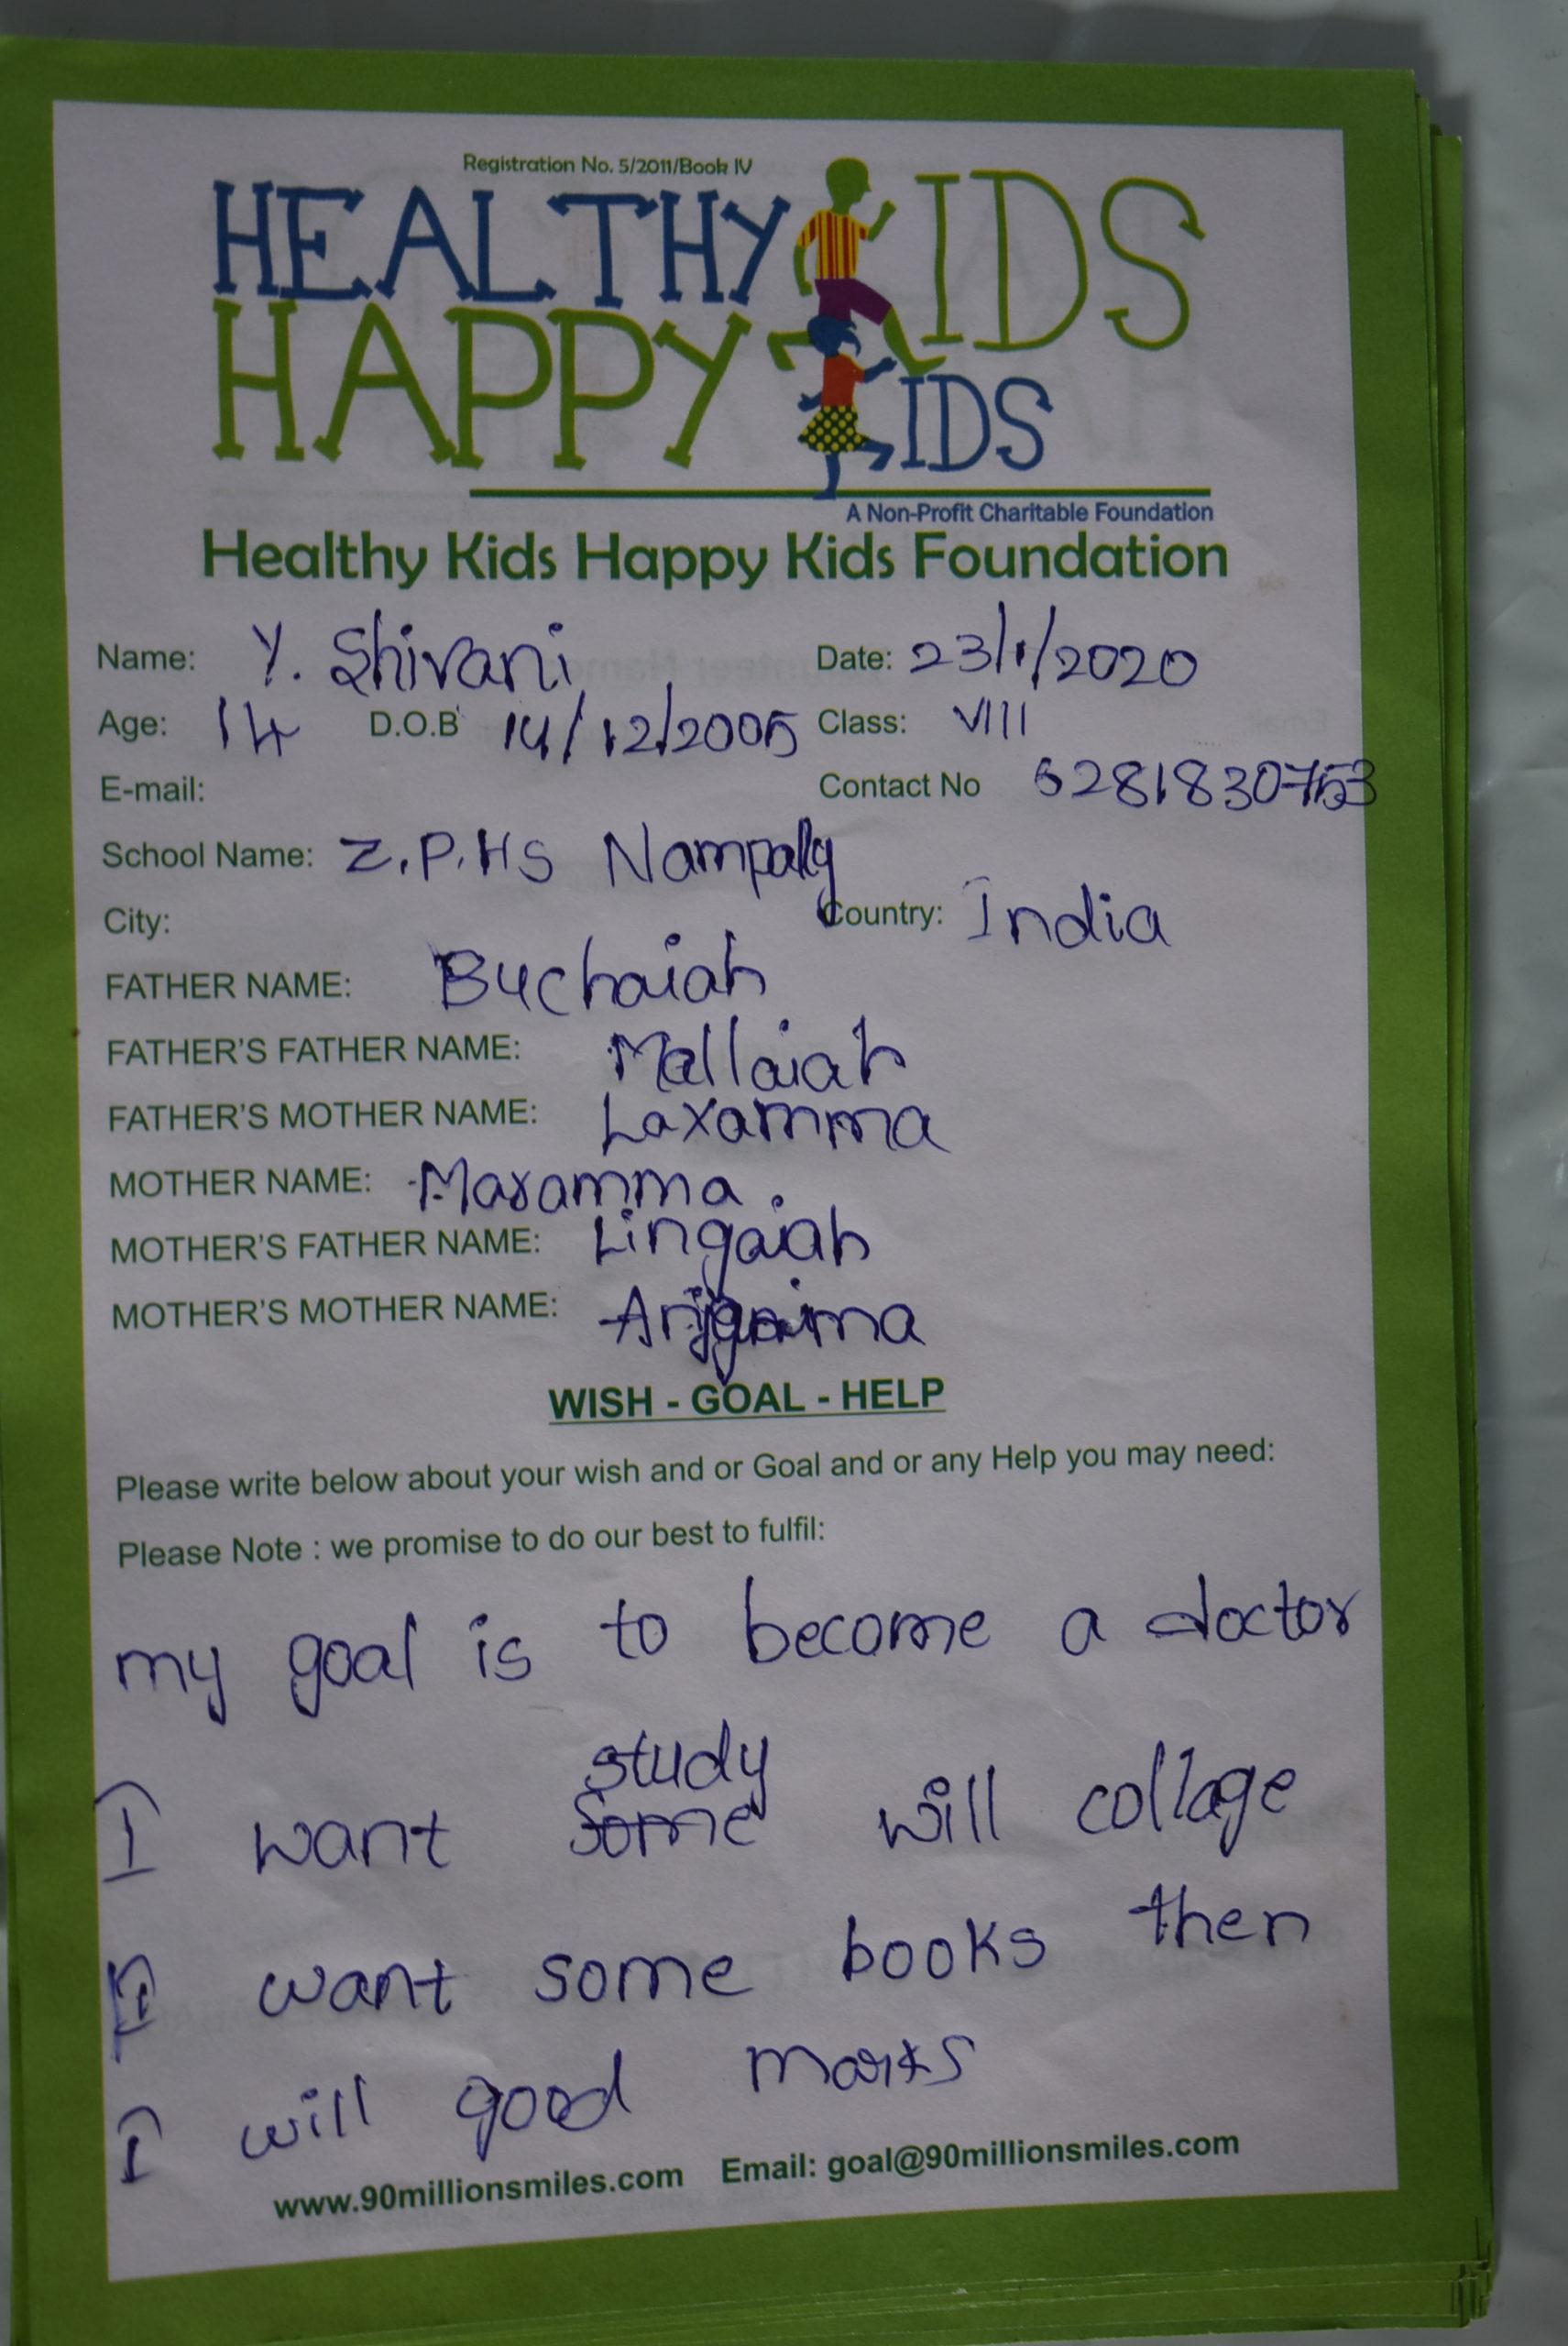 Registration No. 5/2011/Book IV
HEALTHY KIDS
HAPPY KIDS
A Non-Profit Charitable Foundation
Healthy Kids Happy Kids Foundation
Name: Y. Shivani Date: 23/1/2020
Age: 14 D.O.B 14/12/2005 Class: VIII
E-mail: Contact No 6281830753
School Name: Z.P.HS Nampally
City: Country: India
FATHER NAME: Buchaiah
FATHER'S FATHER NAME: Mallaiah
FATHER'S MOTHER NAME: Laxamma
MOTHER NAME: Maramma.
MOTHER'S FATHER NAME: Lingaiah
MOTHER'S MOTHER NAME:
WISH - GOAL - HELP
Please write below about your wish and or Goal and or any Help you may need:
Please Note : we promise to do our best to fulfil:
my goal is to become a doctor
study
I want some will collage
I want some books then
I will good marks
www.90millionsmiles.com Email: goal@90millionsmiles.com